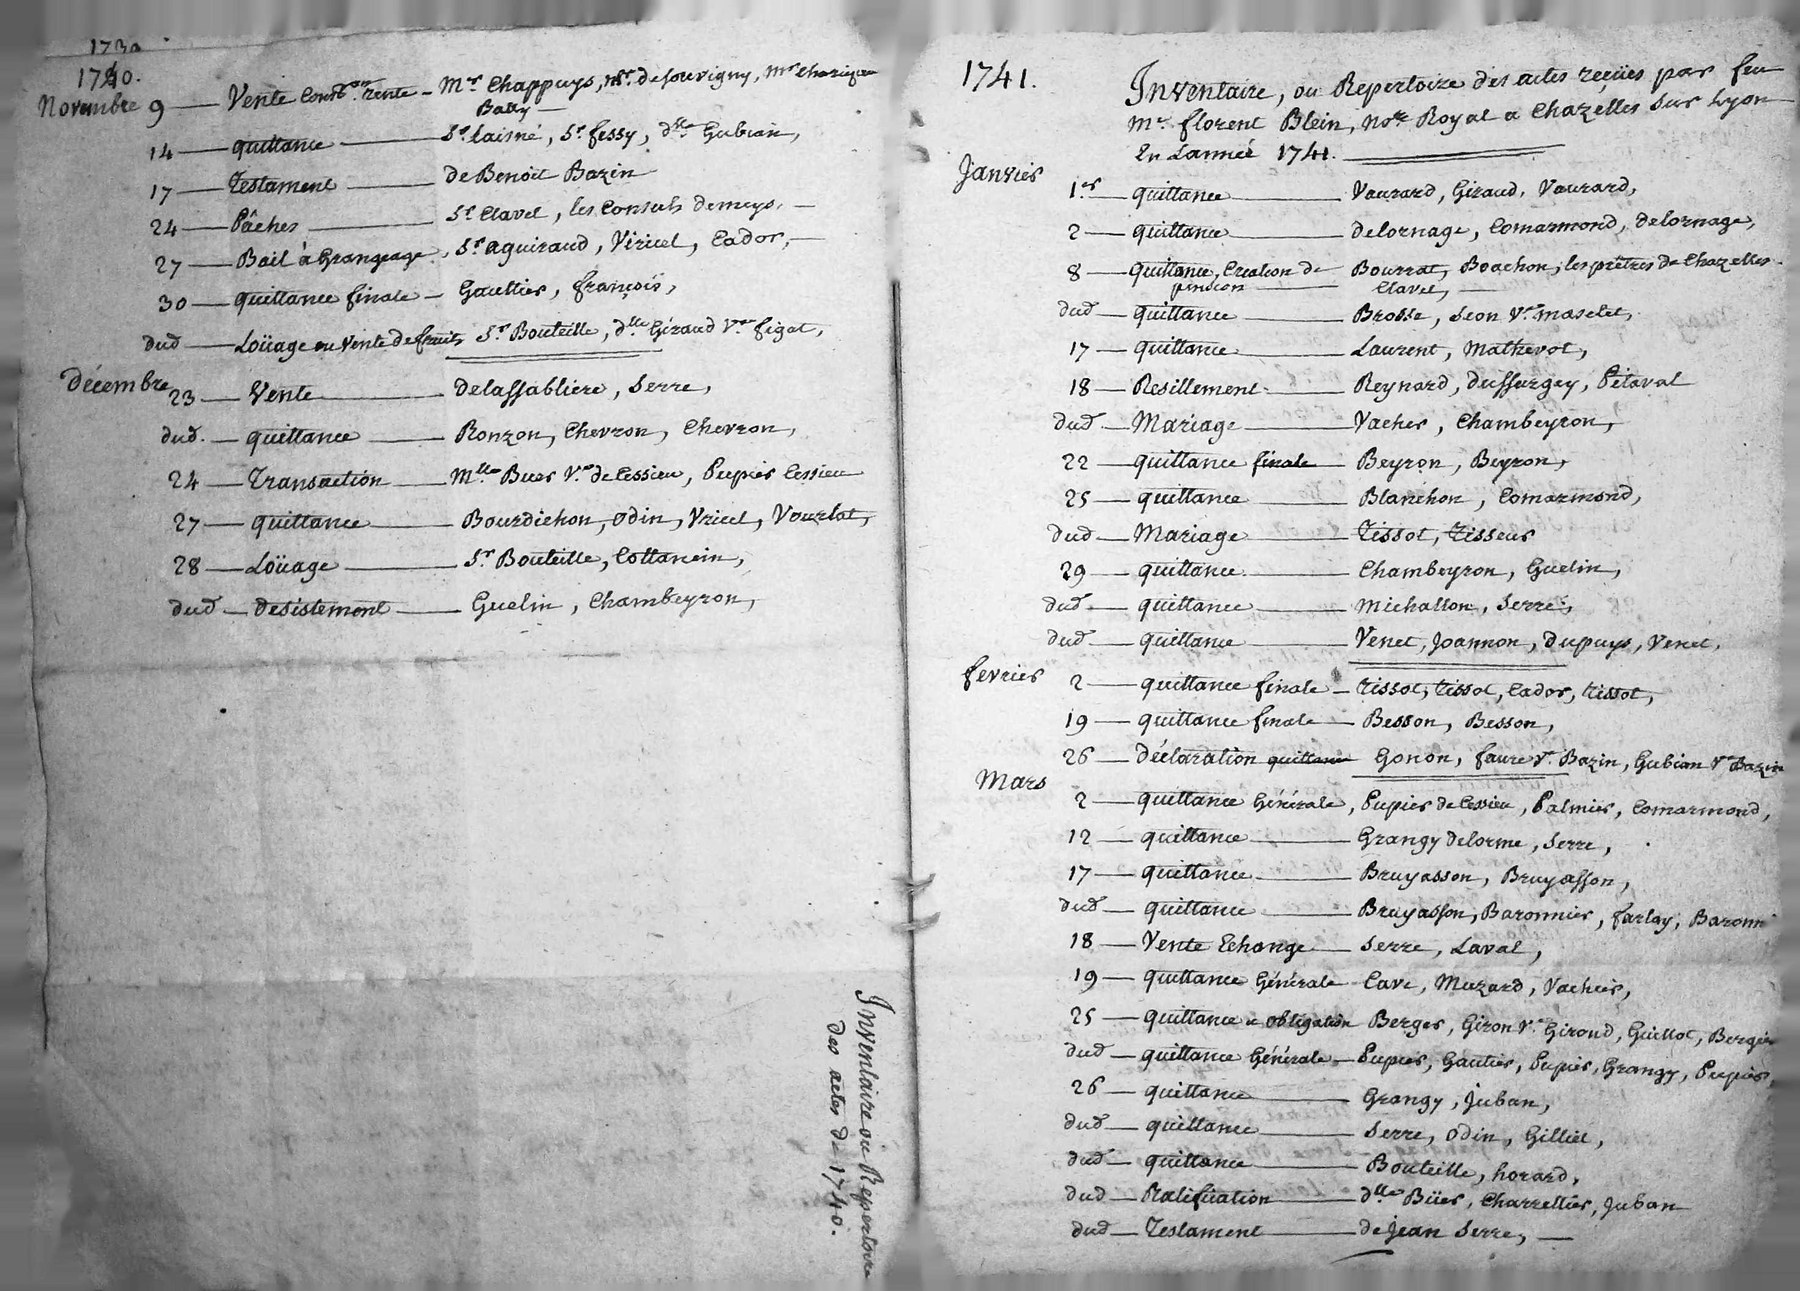 1730
1740.
Novembre 9 — Vente Const.on rente — Mr Chappuys, Mr. de Jouvigny, Mr
Batty —
14 — quittance — Sr. Laisné, Sr. fessy, dlle Gubian,
17 — Testament — de Benoit Bazin
24 — Pâches — Sr Clavel, les Consuls demeys, —
27 — Bail à Grangeage, Sr aguiraud, Viricel, Cador, —
30 — quittance finale — Gaultier, françois,
dud — Loüage ou Vente de fruits Sr Bouteille, dlle Géraud Ve figat,
Décembre 23 — Vente — delassabliere, Serre,
dud. — quittance — Ronzon, Chevron, Chevron,
24 — Transaction — Mlle Buer Ve de Cessieu, Pupier Cessieu
27 — quittance — Bourdichon, Odin, Vricel, Vourlat,
28 — Loüage — Sr Bouteille, Cottancin,
dud — desistement — Guelin, Chambeyron,
Inventaire ou Repertoire
des actes de 1740.
1741.
Inventaire, ou Repertoire des actes reçües par feu
Mr. florent Blein, nore Royal a Chazelles sur Lyon
En Lanneé 1741.
Janvier 1.er — quittance — Vaurard, Giraud, Vaurard,
2 — quittance — delornage, Comarmond, delornage,
8 — quittance, Creation de — Bourrat, Boachon, les prêtres de Chazelles
pension — Clavel, —
dud — quittance — Brosse, Seon Ve. maselet,
17 — quittance — Laurent, Mathevot,
18 — Resillement — Reynard, dussurgey, Pétaval
dud — Mariage — Vacher, Chambeyron,
22 — quittance finale — Beyron, Beyron,
25 — quittance — Blanchon, Comarmond,
dud — Mariage — Tissot, Tisseur
29 — quittance — Chambeyron, Guelin,
dud — quittance — Michallon, Serre,
dud — quittance — Venet, Joannon, Dupuys, Venet,
fevrier 2 — quittance finale — Tissot, Tissot, Cador, Tissot,
19 — quittance finale — Besson, Besson,
26 — déclaration quittance Gonon, faure Ve. Bazin, Gubian Ve Bazin
Mars 2 — quittance Générale, Pupier de Cessieu, Palmier, Comarmond,
12 — quittance — Grangy delorme, Serre,
17 — quittance — Bruyasson, Bruyasson,
dud — quittance — Bruyasson, Baronnier, farlay, Baronni
18 — Vente Echange — Serre, Laval,
19 — quittance Générale — Cave, Muzard, Vacher,
25 — quittance a obligation Berger, Giron Ve Giroud, Guillot, Berger
dud — quittance Générale — Pupier, Gautier, Pupier, Grangy, Pupier,
26 — quittance — Grangy, Juban,
dud — quittance — Serre, Odin, Gilliet,
dud — quittance — Bouteille, horard,
dud — Ratification — dlle Büer, Charretier, Juban
dud — Testament — de jean Serre, —